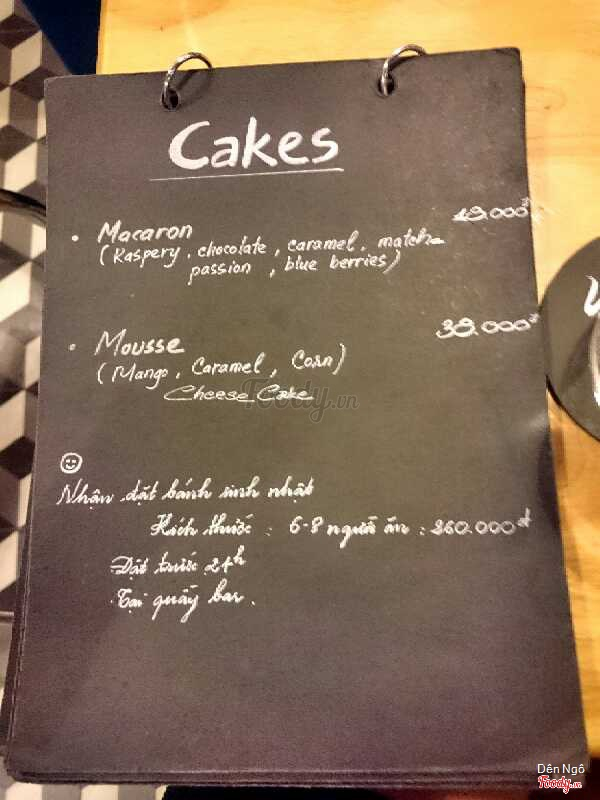 Cakes
• Macaron 19.000đ
(Raspery, chocolate, caramel, matcha
passion, blue berries)
• Mousse 39.000đ
(Mango, Caramel, Corn)
Cheese Cake
Foody.vn
Nhận đặt bánh sinh nhật
Kích thước : 6-8 người ăn : 260.000đ
Đặt trước 24h
Tại quầy bar.
Dên Ngô
Foody.vn